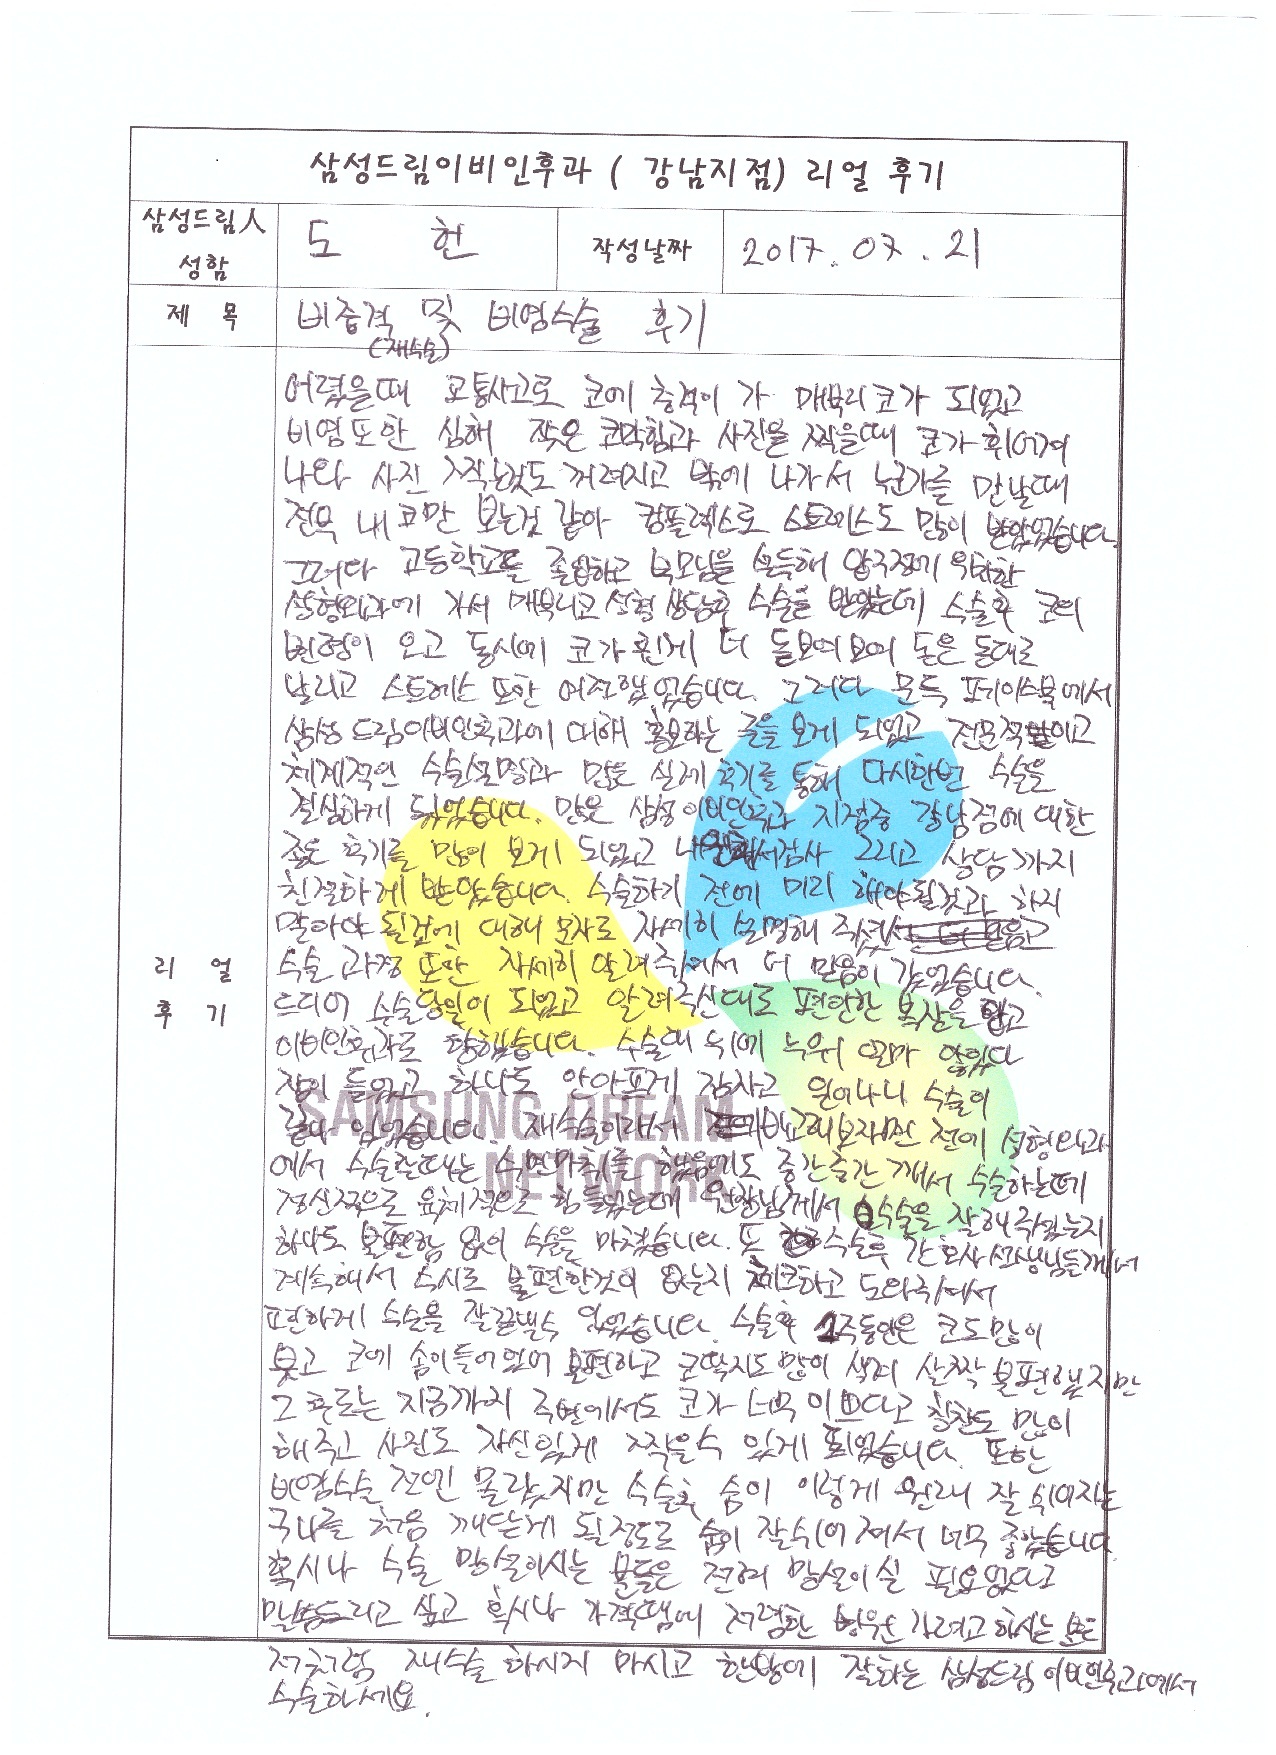 삼성드림이비인후과 ( 강남지점) 리얼 후기
삼성드림人
성함
도 헌
작성날짜
2017. 07. 21
제 목
비중격 및 비염수술 후기
(재수술)
어렸을때 교통사고로 코에 충격이 가 매부리코가 되었고
비염또한 심해 잦은 코막힘과 사진을 찍을때 코가 휘어져
나와 사진 찍는것도 꺼려지고 밖에 나가서 누군가를 만날때
전부 내 코만 보는것 같아 컴플렉스로 스트레스도 많이 받았었습니다.
그러다 고등학교를 졸업하고 부모님을 설득해 압구정에 위치한
성형외과에 가서 매부리코 성형 상담후 수술을 받았는데 수술후 코의
변형이 오고 동시에 코가 휜게 더 돋보여보여 돈은 돈대로
날리고 스트레스 또한 여전했었습니다. 그러다 문득 페이스북에서
삼성드림이비인후과에 대해 홍보하는 글을 보게 되었고 전문적이고
체계적인 수술설명과 많은 실제 후기를 통해 다시한번 수술을
결심하게 되었습니다. 많은 삼성이비인후과 지점중 강남점에 대한
좋은 후기를 많이 보게 되었고 검사 그리고 상담까지
친절하게 받았습니다. 수술하기 전에 미리 해야될것과 하지
말아야 될것에 대해 문자로 자세히 설명해 주셨고
수술 과정 또한 자세히 알려주셔서 더 믿음이 갔었습니다.
드디어 수술당일이 되었고 알려주신대로 편안한 복장을 입고
이비인후과로 향했습니다. 수술대 위에 누워 얼마 않있다
잠이 들었고 하나도 안아프게 잠자고 일어나니 수술이
끝나 있었습니다. 재수술이라서 비교해보자면 전에 성형외과
에서 수술할때는 수면마취를 했음에도 중간중간 깨서 수술하는데
정신적으로 육체적으로 힘들었는데 원장님께서 수술을 잘해주셨는지
하나도 불편함 없이 수술을 마쳤습니다. 또 수술후 간호사선생님들께서
계속해서 수시로 불편한것이 없는지 체크하고 도와줘서
편하게 수술을 잘끝낼수 있었습니다. 수술후 1주동안은 코도많이
붓고 코에 솜이들어있어 불편하고 코딱지도 많이 생겨 살짝 불편했지만
그 후로는 지금까지 주변에서도 코가 너무 이쁘다고 칭찬도 많이
해주고 사진도 자신있게 찍을수 있게 되었습니다. 또한
비염수술 전엔 몰랐지만 수술후 숨이 이렇게 원래 잘 쉬어지는
구나를 처음 깨닫게 될정도로 숨이 잘쉬어져서 너무 좋았습니다
혹시나 수술 망설이시는 분들은 전혀 망설이실 필요없다고
말씀드리고 싶고 혹시나 가격땜에 저렴한 병원 가려고하시는 분은
저처럼 재수술 하시지 마시고 한방에 잘하는 삼성드림이비인후과에서
수술하세요.
리 얼
후 기
SAMSUNG DREAM
NETWORK